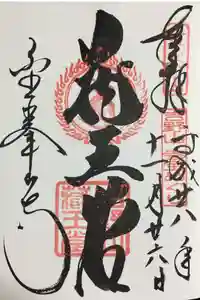 奉拝
平成廿八年
十一月廿六日
蔵王堂
金峯山寺